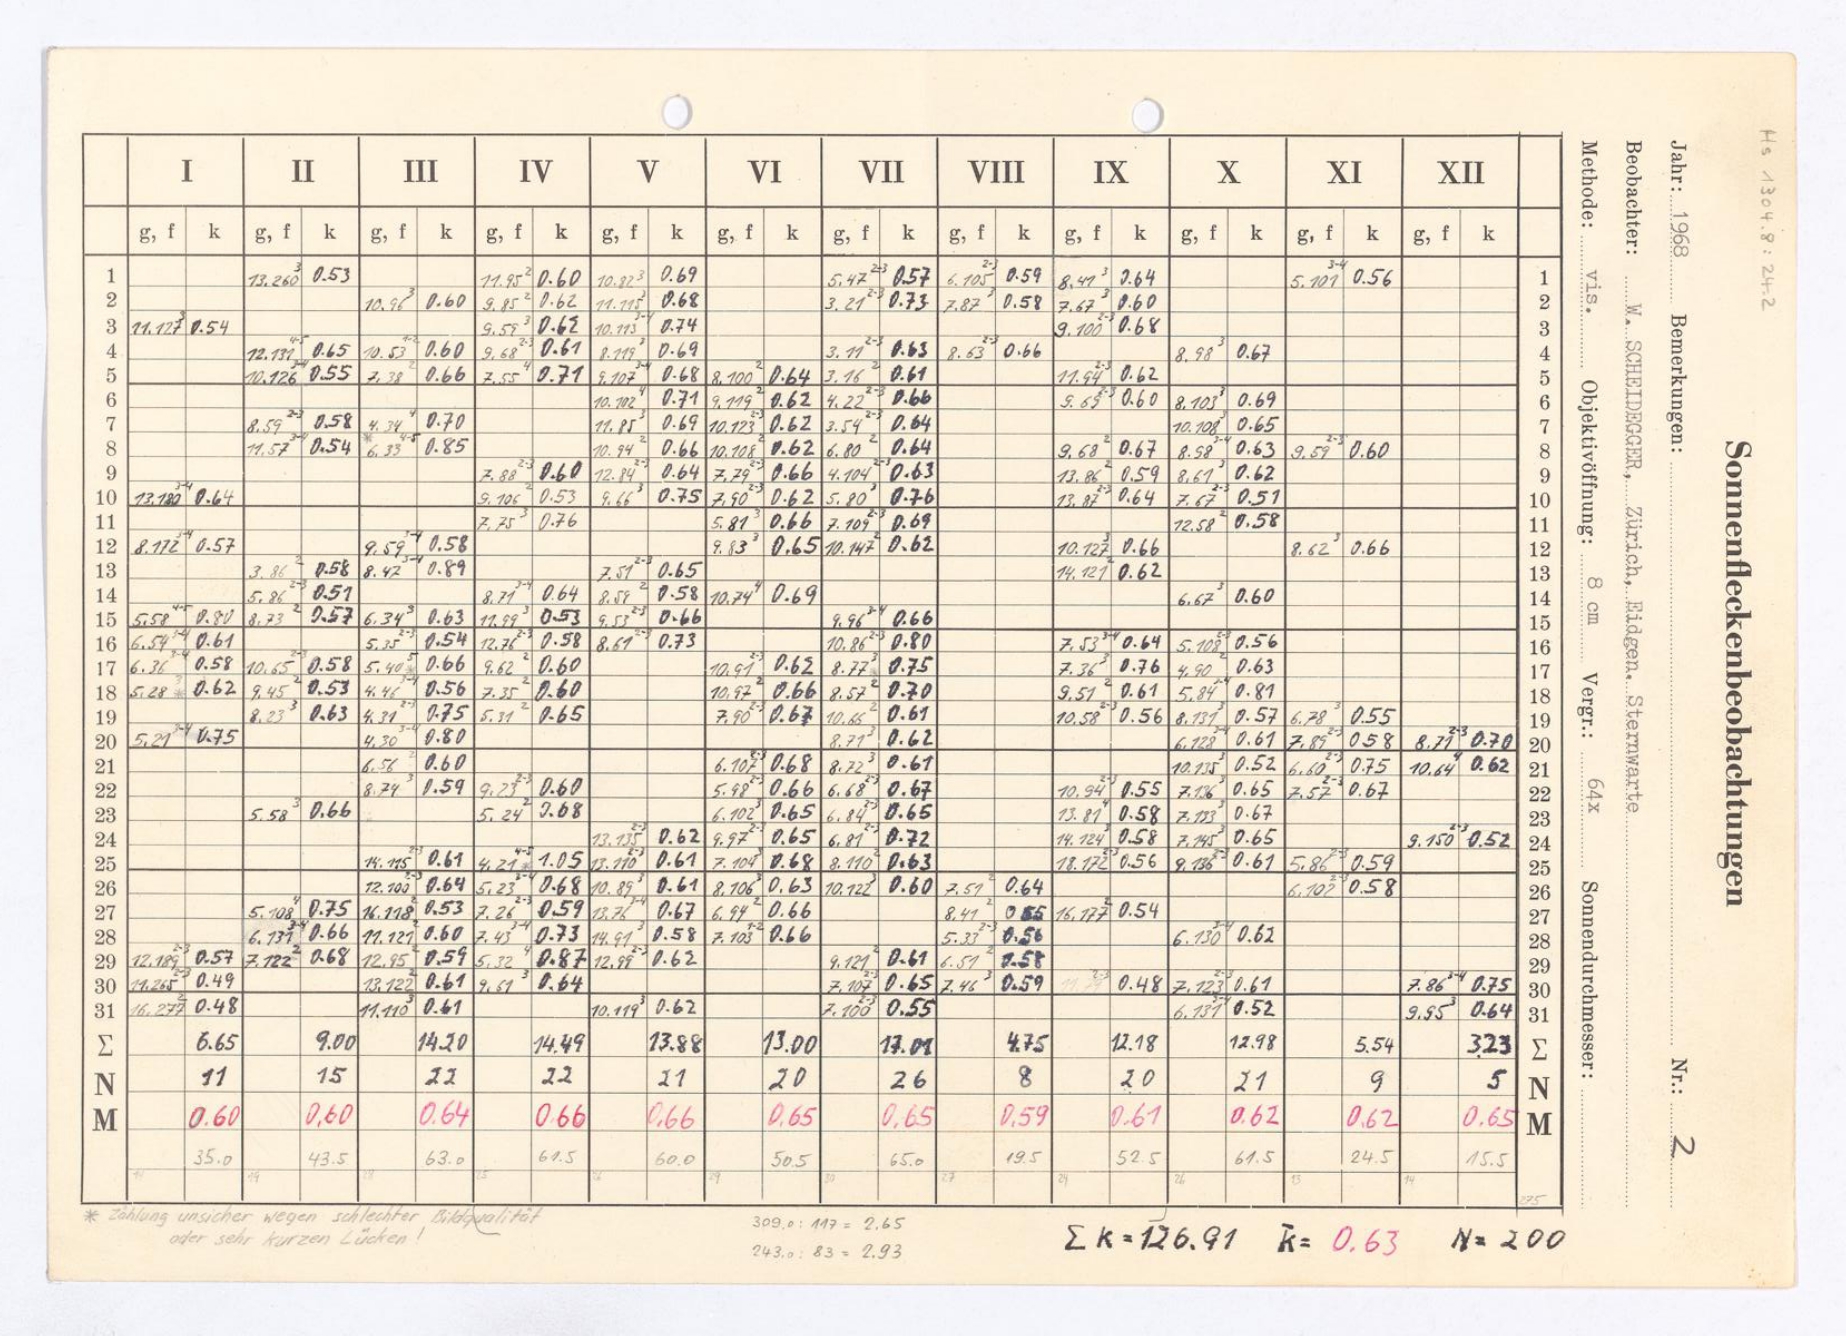 Hs 1304.8:24.2
Sonnenfleckenbeobachtungen
Jahr: 1968 Bemerkungen: Nr.: 2
Beobachter: W. SCHEIDEGGER, Zürich, Eidgen. Sternwarte
Methode: vis. Objektivöffnung: 8 cm Vergr.: 64x Sonnendurchmesser:
I II III IV V VI VII VIII IX X XI XII
g, f k g, f k g, f k g, f k g, f k g, f k g, f k g, f k g, f k g, f k g, f k g, f k
1 13.260 3 0.53 11.95 2 0.60 10.82 3 0.69 5.47 2-3 0.57 6.105 2-3 0.59 8.41 3 0.64 5.101 3-4 0.56 1
2 10.96 3 0.60 9.85 2 0.62 11.115 3 0.68 3.21 2-3 0.73 7.87 3 0.58 7.67 3 0.60 2
3 11.127 3 0.54 9.59 3 0.62 10.113 3-4 0.74 9.100 2-3 0.68 3
4 12.131 4-5 0.65 10.53 1-2 0.60 9.68 2-3 0.61 8.119 3 0.69 3.11 2-3 0.63 8.63 2-3 0.66 8.98 3 0.67 4
5 10.126 3-4 0.55 7.38 2 0.66 7.55 4 0.71 9.107 3-4 0.68 8.100 2 0.64 3.16 2 0.61 11.94 2-3 0.62 5
6 10.102 4 0.71 9.119 2 0.62 4.22 2-3 0.66 9.69 2-3 0.60 8.103 3 0.69 6
7 8.59 2-3 0.58 4.34 4 0.70 11.85 3 0.69 10.123 2-3 0.62 3.54 2-3 0.64 10.108 3 0.65 7
8 11.57 3-4 0.54 * 6.33 4-5 0.85 10.94 2 0.66 10.108 2-3 0.62 6.80 2 0.64 9.68 2 0.67 8.98 3-4 0.63 9.59 2-3 0.60 8
9 7.88 2-3 0.60 12.84 2-3 0.64 7.79 2-3 0.66 4.104 2-3 0.63 13.86 2 0.59 8.61 3 0.62 9
10 13.180 3-4 0.64 9.106 2 0.53 9.66 3 0.75 7.90 2-3 0.62 5.80 3 0.76 13.87 2-3 0.64 7.67 2-3 0.51 10
11 7.75 3 0.76 5.81 3 0.66 7.109 2-3 0.69 12.58 2 0.58 11
12 8.172 3-4 0.57 9.59 3-4 0.58 9.83 3 0.65 10.147 2 0.62 10.127 3 0.66 8.62 3 0.66 12
13 3.86 2 0.58 8.47 3-4 0.89 7.51 2-3 0.65 14.121 2 0.62 13
14 5.86 2-3 0.51 8.71 3-4 0.64 8.59 2 0.58 10.74 4 0.69 6.67 3 0.60 14
15 5.58 4-5 0.80 8.73 2 0.57 6.34 3 0.63 11.99 3 0.53 9.53 2-3 0.66 9.96 3-4 0.66 15
16 6.54 3-4 0.61 5.35 2-3 0.54 12.76 2-3 0.58 8.61 2-3 0.73 10.86 2-3 0.80 7.53 3-4 0.64 5.108 2-3 0.56 16
17 6.36 3-4 0.58 10.65 2-3 0.58 5.40 5 * 0.66 9.62 2 0.60 10.91 2-3 0.62 8.77 3 * 0.75 7.36 3 0.76 4.90 2 0.63 17
18 5.28 3 * 0.62 9.45 2 0.53 4.46 3-4 0.56 7.35 2 0.60 10.97 2 0.66 8.57 2 0.70 9.51 2 0.61 5.84 3-4 0.81 18
19 8.23 3 0.63 4.31 2-3 0.75 5.31 2 0.65 7.90 2-3 0.67 10.66 2 0.61 10.58 2-3 0.56 8.131 3 0.57 6.78 3 0.55 19
20 5.21 3-4 0.75 4.30 3-4 0.80 8.71 3 0.62 6.128 3-4 0.61 7.89 2-3 0.58 8.71 2-3 0.70 20
21 6.56 2 0.60 6.107 2-3 0.68 8.72 3 0.61 10.135 3 0.52 6.60 2-3 0.75 10.64 4 0.62 21
22 8.74 3 0.59 9.23 2-3 0.60 5.98 2 0.66 6.68 3 0.67 10.94 2-3 0.55 7.136 3 0.65 7.57 2-3 0.67 22
23 5.58 3 0.66 5.24 2 0.68 6.102 3 0.65 6.84 2-3 0.65 13.81 4 0.58 7.133 3 0.67 23
24 13.135 2-3 0.62 9.97 2-3 0.65 6.81 2-3 0.72 14.124 3 0.58 7.145 3 0.65 9.150 2-3 0.52 24
25 14.115 2-3 0.61 4.21 4-5 * 1.05 13.110 2-3 0.61 7.104 3 0.68 8.110 2 0.63 18.172 2-3 0.56 9.136 2-3 0.61 5.86 2-3 0.59 25
26 12.100 2-3 0.64 5.23 3-4 0.68 10.89 3 0.61 8.106 3 0.63 10.122 3 0.60 7.51 2-3 0.64 6.102 2 0.58 26
27 5.108 4 0.75 16.118 2 0.53 7.26 2-3 0.59 13.76 3-4 0.67 6.94 2 0.66 8.41 2 0.55 16.177 2 0.54 27
28 6.131 3-4 0.66 11.121 2 0.60 7.43 3-4 0.73 14.91 3 0.58 7.103 1-2 0.66 5.33 2-3 0.56 6.130 3-4 0.62 28
29 12.189 2-3 0.57 7.122 2 0.68 12.95 2 0.59 5.32 4 0.87 12.99 2-3 0.62 9.121 2 0.61 6.51 2 0.58 29
30 11.265 2-3 0.49 13.122 2 0.61 9.61 3 0.64 7.107 2-3 0.65 7.46 3 0.59 0.48 7.123 2-3 0.61 7.86 3-4 0.75 30
31 16.277 2 0.48 11.110 3 0.61 10.119 3 0.62 7.100 2-3 0.55 6.131 3-4 0.52 9.95 3 0.64 31
Σ 6.65 9.00 14.20 14.49 13.88 13.00 17.01 4.75 12.18 12.98 5.54 3.23 Σ
N 11 15 22 22 21 20 26 8 20 21 9 5 N
M 0.60 0.60 0.64 0.66 0.66 0.65 0.65 0.59 0.61 0.62 0.62 0.65 M
35.0 43.5 63.0 61.5 60.0 50.5 65.0 19.5 52.5 61.5 24.5 15.5
19 25 29 30 27 24 26 13 14 275
* Zählung unsicher wegen schlechter Bildqualität
oder sehr kurzen Lücken!
309.0 : 117 = 2.65
243.0 : 83 = 2.93
Σ k = 126.91 k̄ = 0.63 N = 200